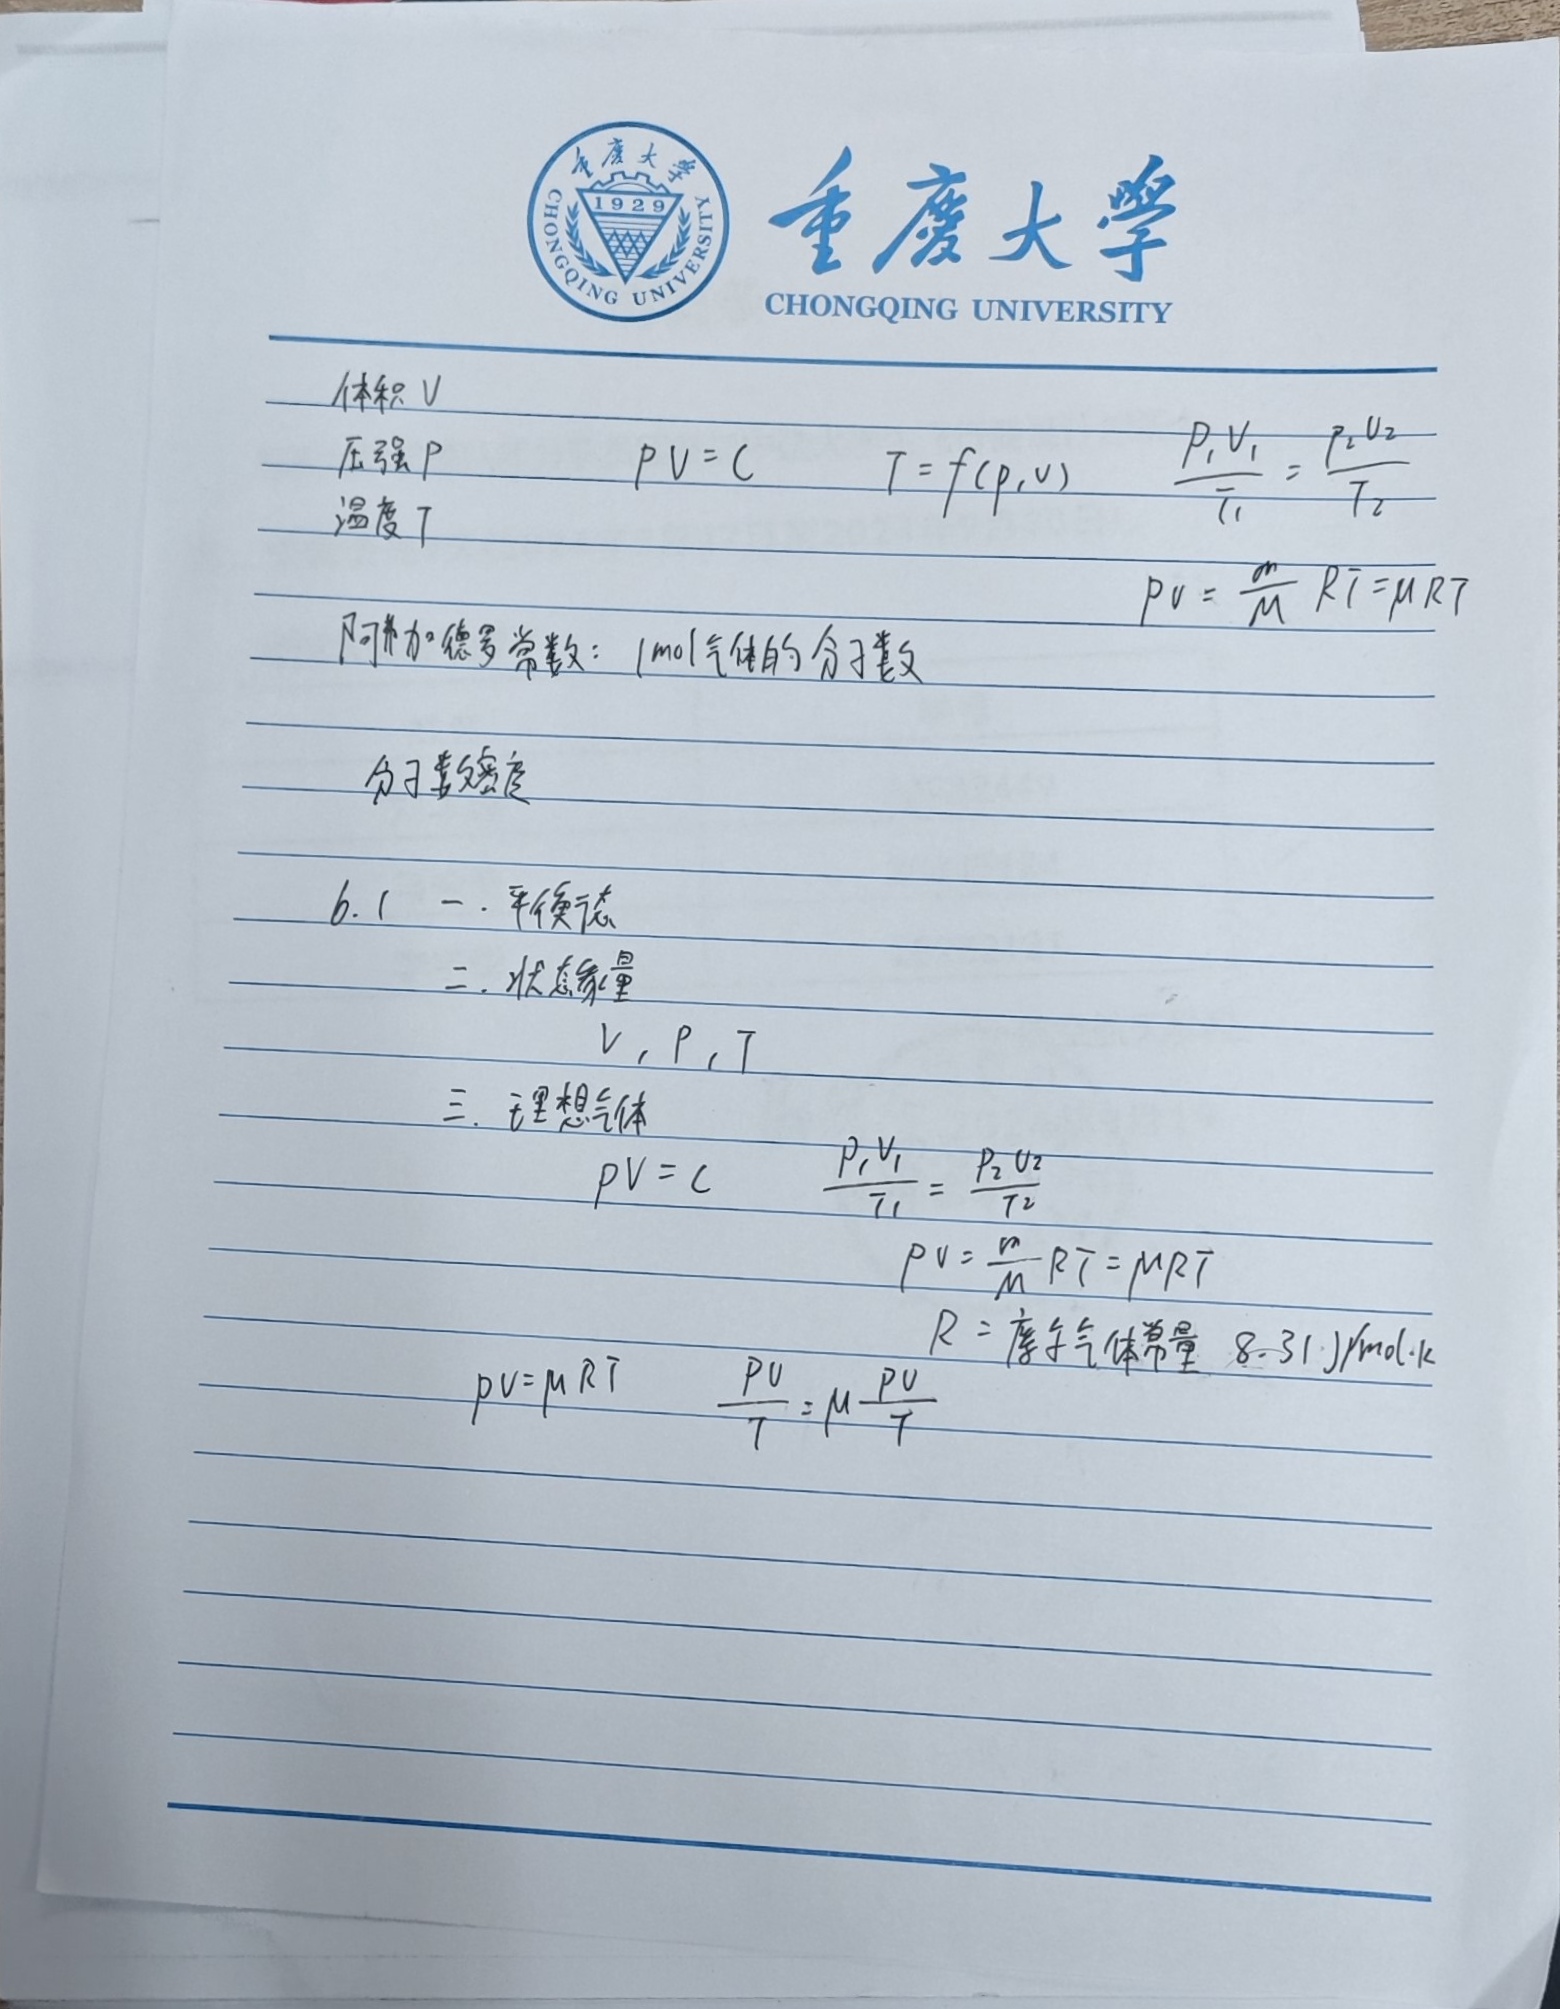 重庆大学
1929
CHONGQING UNIVERSITY
重庆大学
CHONGQING UNIVERSITY
体积 V
压强 P PV = C T = f(p,v) P₁V₁/T₁ = P₂V₂/T₂
温度 T
PV = m/M RT = μRT
阿弗加德罗常数: 1mol气体的分子数
分子数密度
6.1 一. 平衡态
二. 状态参量
V, P, T
三. 理想气体
PV = C P₁V₁/T₁ = P₂V₂/T₂
PV = m/M RT = μRT
R = 摩尔气体常量 8.31 J/mol·k
PV = μRT PV/T = μ PV/T